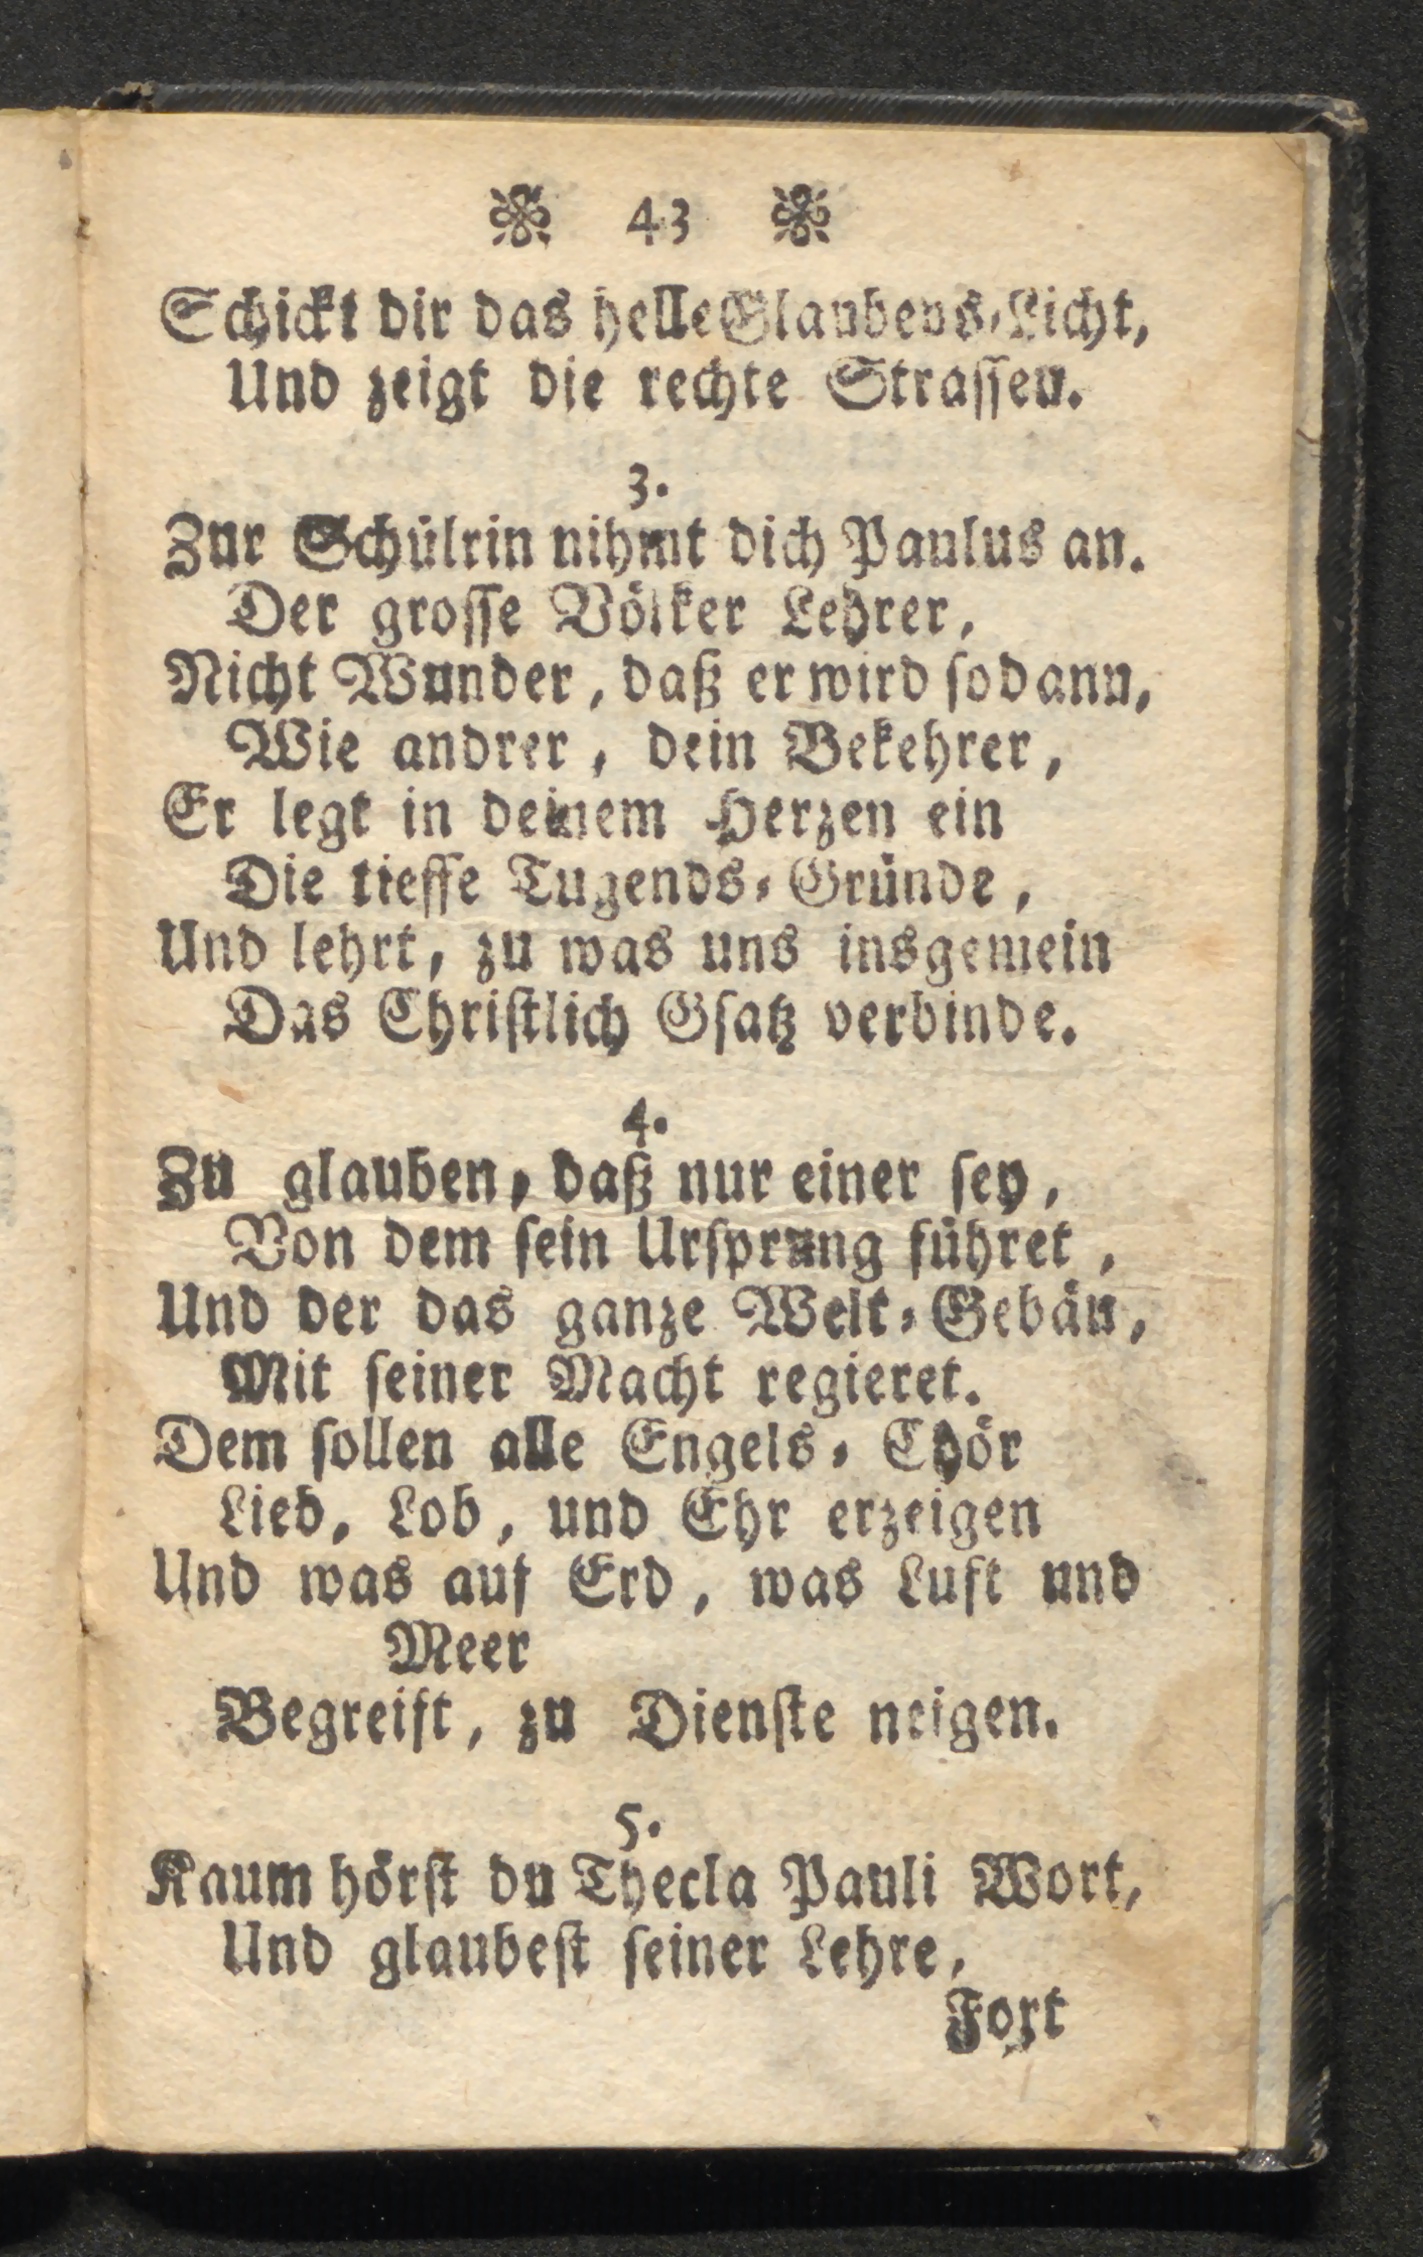 43
Schickt dir das helle Glaubens-Licht,
Und zeigt die rechte Strassen.
3.
Zur Schülrin nihmt dich Paulus an.
Der grosse Völker Lehrer,
Nicht Wunder, daß er wird sodann,
Wie andrer, dein Bekehrer,
Er legt in deinem Herzen ein
Die tieffe Tugends-Gründe,
Und lehrt, zu was uns insgemein
Das Christlich Gsatz verbinde.
4.
Zu glauben, daß nur einer sey,
Von dem sein Ursprung führet,
Und der das ganze Welt-Gebäu,
Mit seiner Macht regieret.
Dem sollen alle Engels-Chör
Lied, Lob, und Ehr erzeigen
Und was auf Erd, was Luft und
Meer
Begreift, zu Dienste neigen.
5.
Kaum hörst du Thecla Pauli Wort,
Und glaubest seiner Lehre,
Fort